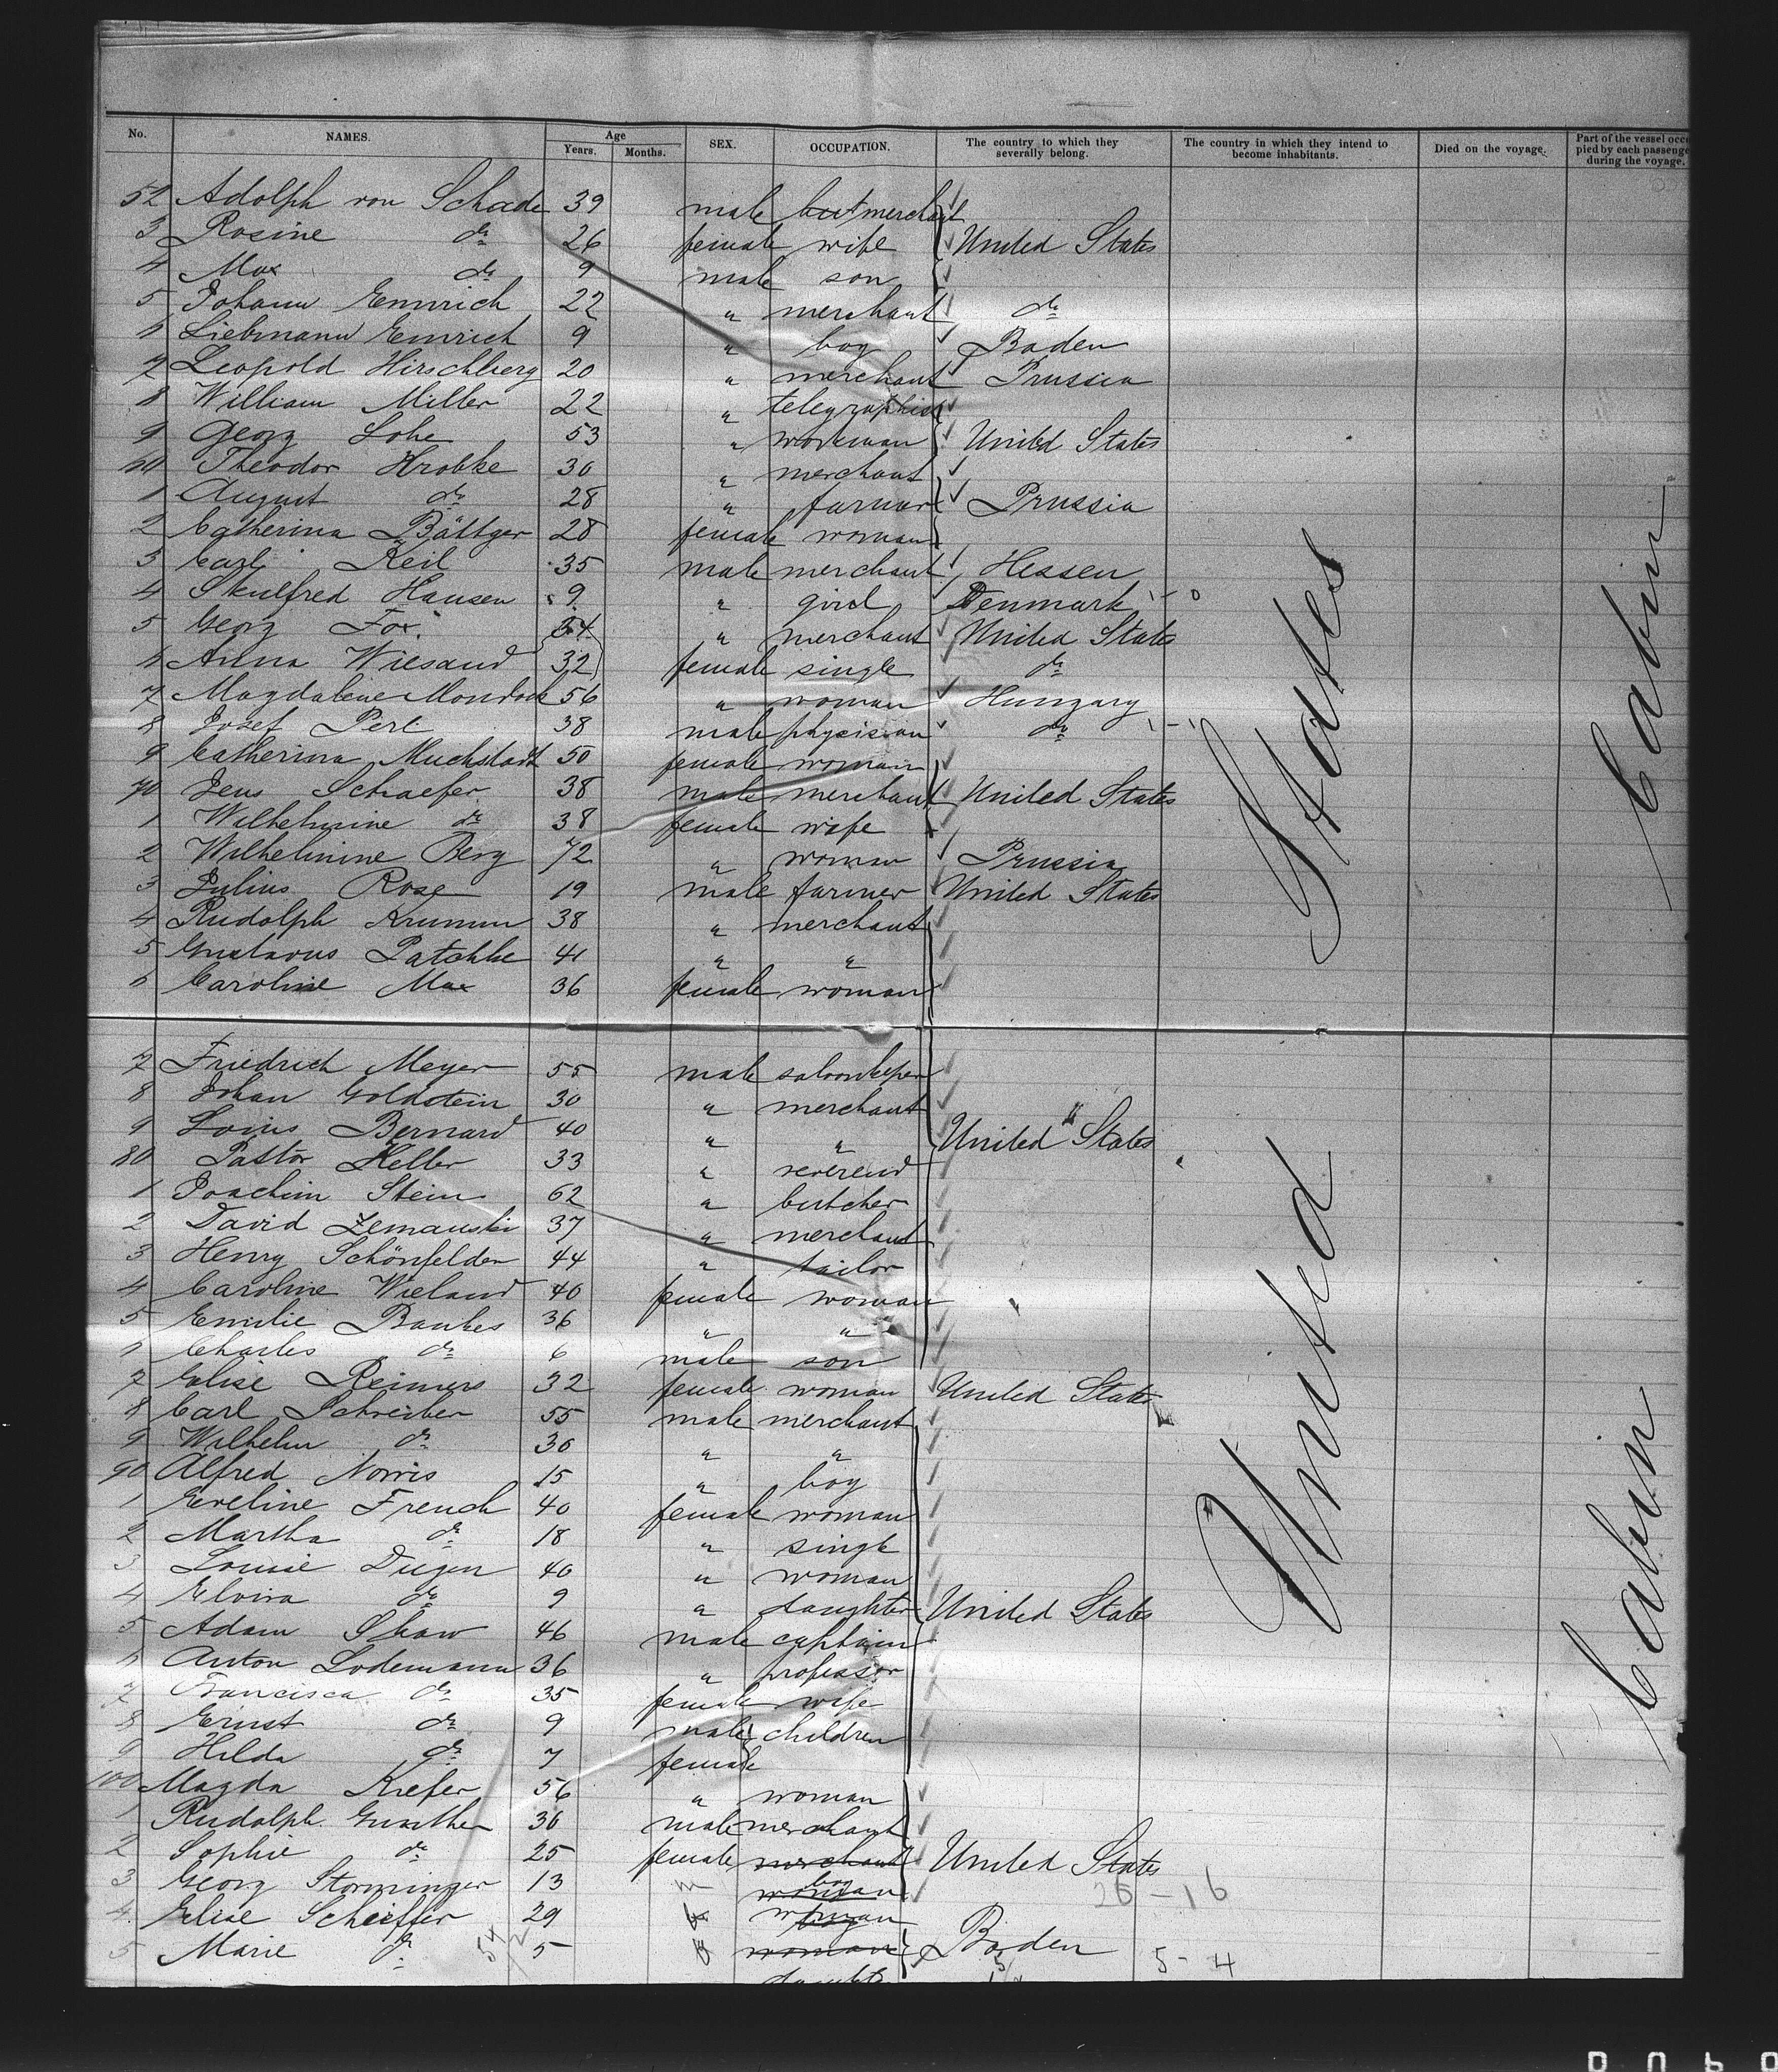 No. NAMES. Age Years. Months. SEX. OCCUPATION. The country to which they severally belong. The country in which they intend to become inhabitants. Died on the voyage. Part of the vessel occu pied by each passenge during the voyage.
52 Adolph von Schade 39 male but merchant
3 Rosine do 26 female wife United States
4 Max do 9 male son
5 Johann Emrich 22 " merchant do
6 Liebmann Emrich 9 " boy Baden
7 Leopold Hirschberg 20 " merchant Prussia
8 William Miller 22 " telegraphist
9 Georg Lohe 53 " workman United States
60 Theodor Hrobke 30 " merchant
1 August do 28 " farmer Prussia
2 Catherina Bättger 28 female woman
3 Carl Keil 35 male merchant Hessen
4 Skulfred Hansen 9 " girl Denmark
5 Georg Fox 34 " merchant United States
6 Anna Wiesand 32 female single do
7 Magdaleine 56 " woman Hungary
8 Josef Perl 38 male physician do
9 Catherina Muchstadt 50 female woman
70 Jens Schaefer 38 male merchant United States
1 Wilhelmine do 38 female wife
2 Wilhelmine Berg 72 " woman Prussia
3 Julius Rose 19 male farmer United States
4 Rudolph Krumm 38 " merchant
5 Gustavus Patchke 41 " "
6 Caroline Max 36 female woman
7 Friedrich Meyer 55 male saloonkeeper
8 Johan Goldstein 30 " merchant
9 Louis Bernard 40 " " United States
80 Pastor Heller 33 " reverend
1 Joachim Stein 62 " butcher
2 David Zemanski 37 " merchant
3 Henry Schönfelder 44 " tailor
4 Caroline Wieland 40 female woman
5 Emilie Bankes 36 " "
6 Charles do 6 male son
7 Elise Reimers 32 female woman United States
8 Carl Schreiber 55 male merchant
9 Wilhelm do 30 " "
90 Alfred Norris 15 " boy
1 Eveline French 40 female woman
2 Martha do 18 " single
3 Louise Dugen 40 " woman
4 Elvira do 9 " daughter United States
5 Adam Shaw 46 male captain
6 Anton Lodemann 36 " professor
7 Francisca do 35 female wife
8 Ernst do 9 male children
9 Hilda do 7 female
100 Magda Kiefer 56 " woman
1 Rudolph Gunther 30 male merchant
2 Sophie do 25 female merchant United States
3 Georg Storminger 13 m woman boy 26-16
4 Elise Scheiffer 29 woman
5 Marie do 5 woman Baden 5-4
United States
Cabin
Cabin